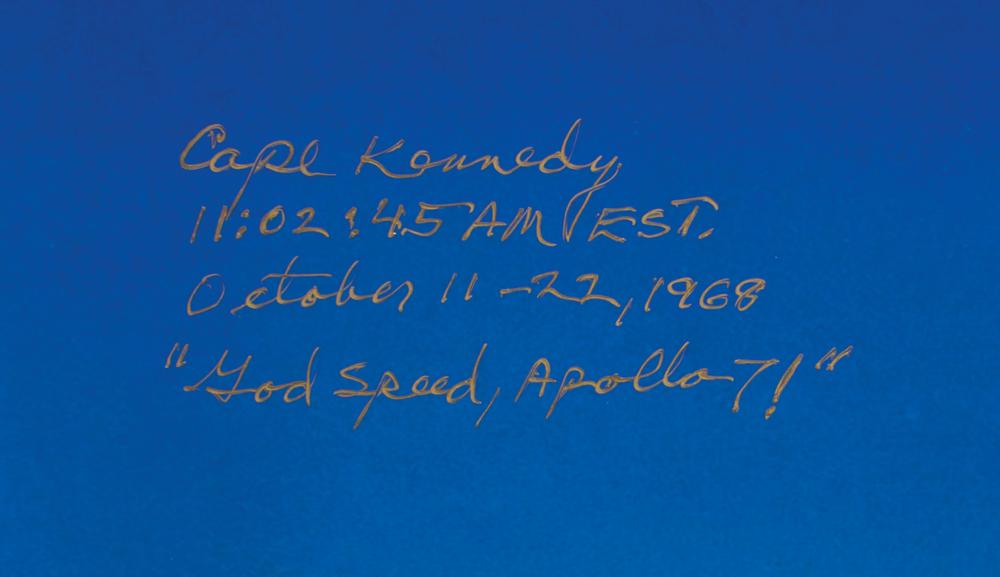 Cape Kennedy
11:02:45 AM EST.
October 11-22, 1968
"God Speed, Apollo 7!"